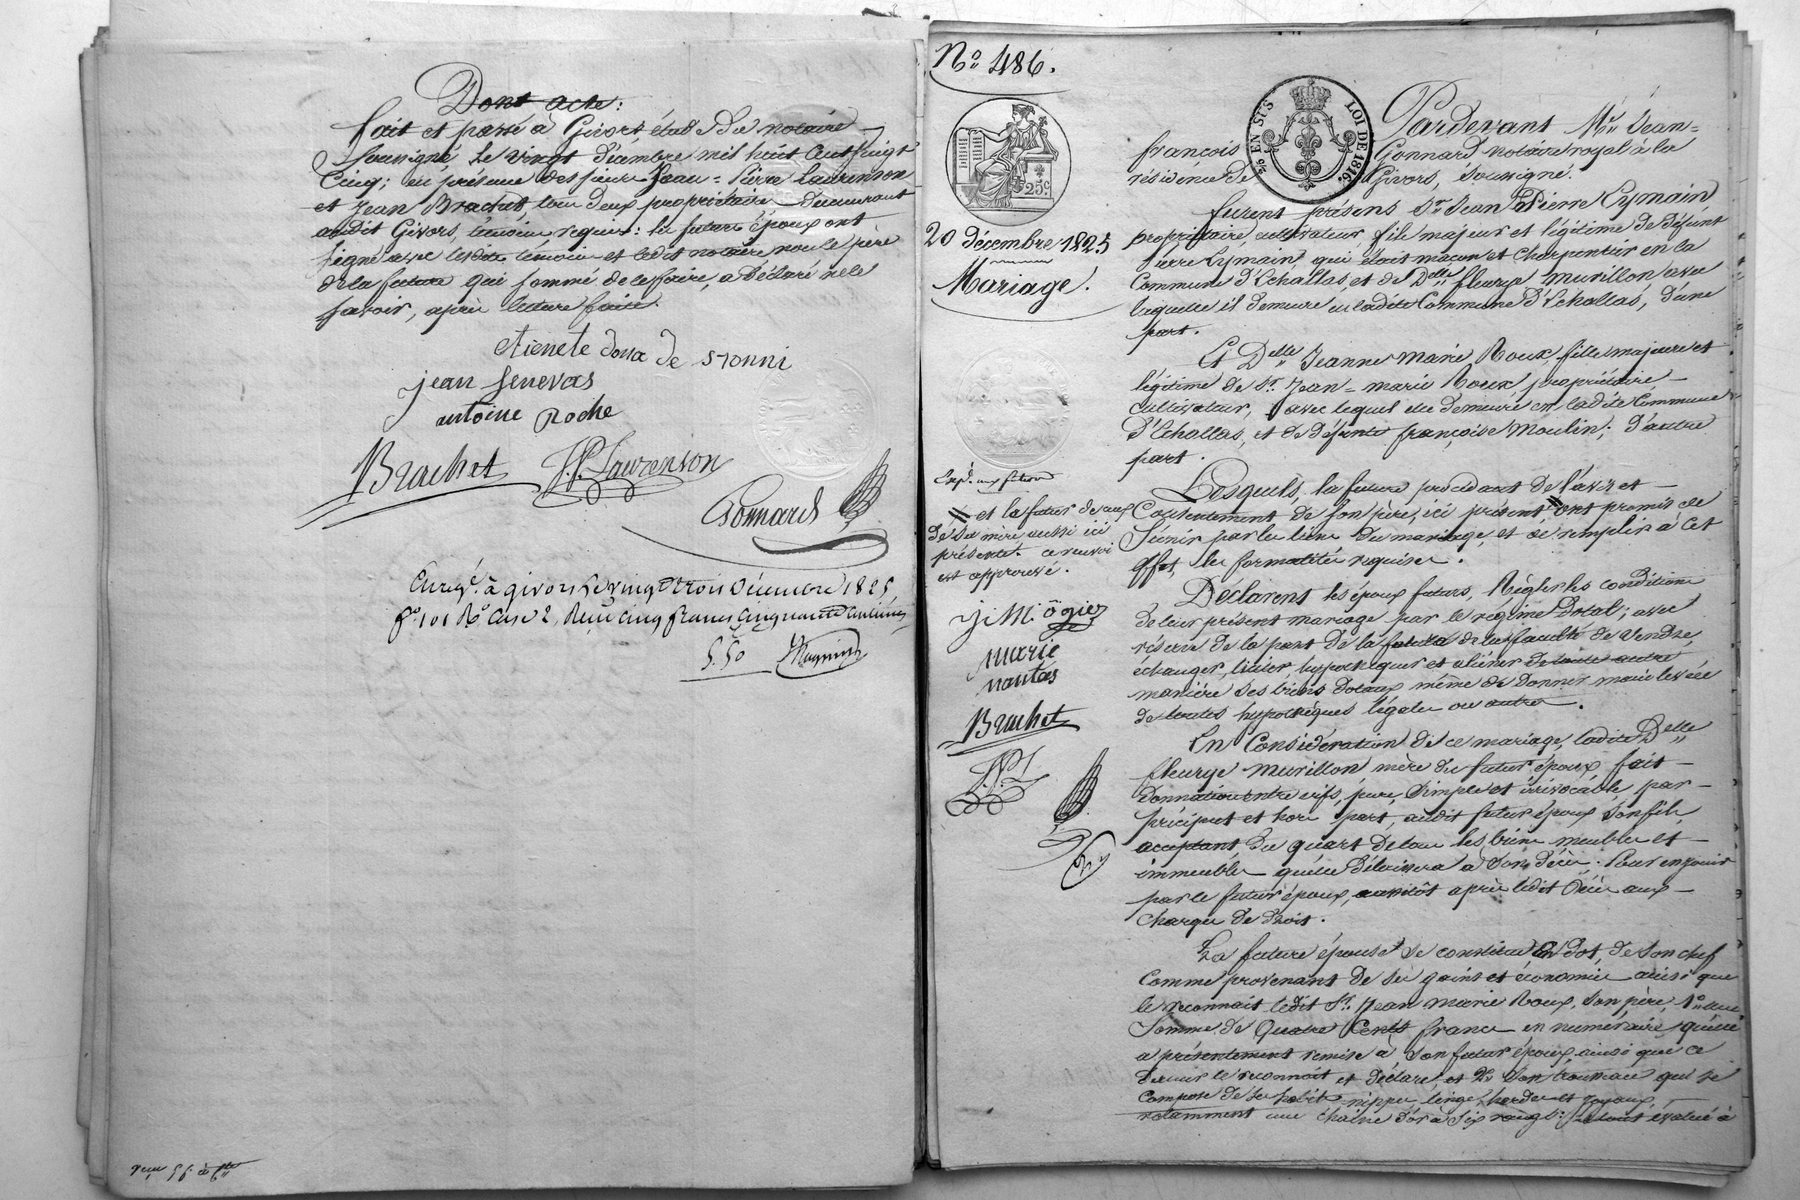 Dont acte:
fait et passé à Givors étude du notaire
soussigné le vingt décembre mil huit cent vingt
cinq; en présence des sieurs Jean-Pierre Laurenson
et Jean Brachet, tous deux propriétaires demeurant
audit Givors, témoins requis: les futurs époux ont
signé avec lesdits témoins et ledit notaire non le père
de la future qui sommé de le faire, a déclaré ne le
savoir, après lecture faite.
jean
antoine Roche
Brachet J.P. Laurenson
Gonnard
Enreg.é à givors le vingt trois Décembre 1825
f.o 101 R.o Case 2, Reçu cinq francs cinquante centimes
5.50
N.o 486.
EN SUS LOI DE 1816.
25c
20 décembre 1825
Mariage.
Pardevant M.e Jean=
françois Gonnard notaire royal à la
résidence de Givors, soussigné.
furent présens S.r Jean Pierre Eymain,
propriétaire cultivateur, fils majeur et légitime de défunt
Pierre Eymain qui était maçon et charpentier en la
Commune d'Echallas, et de D.elle fleurye Murillon avec
laquelle il demeure en ladite Commune d'Echallas, d'une
part.
Et D.elle Jeanne Marie Roux fille majeure et
légitime de S.r Jean=marie Roux, propriétaire
cultivateur, avec lequel elle demeure en ladite Commune
d'Echallas, et de défunte françoise Moulin; d'autre
part.
Lesquels, la future procédant de l'avis et
Consentement de son père, ici présent ont promis de
s'unir par les liens du mariage, et de remplir à cet
effet, les formalités requises.
et le futur de ceux
de sa mère aussi ici
présente. ce renvoi
est approuvé.
J.M. ôgier
marie
nantas
Brachet
J.P.L
Déclarent les époux futurs, Régler les conditions
de leur présent mariage par le régime Dotal; avec
réserve de la part de la future de la faculté de vendre,
échanger, liciter, hypothéquer et aliéner de toute autre
manière ses biens dotaux même de donner main levée
de toutes hypothèques légales ou autres.
En Considération de ce mariage, ladite D.elle
fleurye Murillon mère du futur époux, fait
Donnation entre vifs, pure, simple et irrévocable, par
préciput et hors part, audit futur époux son fils,
acceptant du quart de tous les biens meubles et
immeubles qu'elle délaissera à son décès. Pour en jouir
par le futur époux, aussitôt après ledit décès aux
charges de droit.
La future épouse se constitue en dot, de son chef
comme provenant de ses gains et économies ainsi que
le reconnait ledit S.r Jean Marie Roux, son père, 1.o une
somme de Quatre Cents francs en numéraire, qu'elle
a présentement remise à son futur époux, ainsi que ce
dernier le reconnoit et déclare, et 2.o Son trousseau qui se
compose de ses habits nippes linges, hardes et joyaux,
notamment une chaîne d'or à six rangs: le tout évalué à